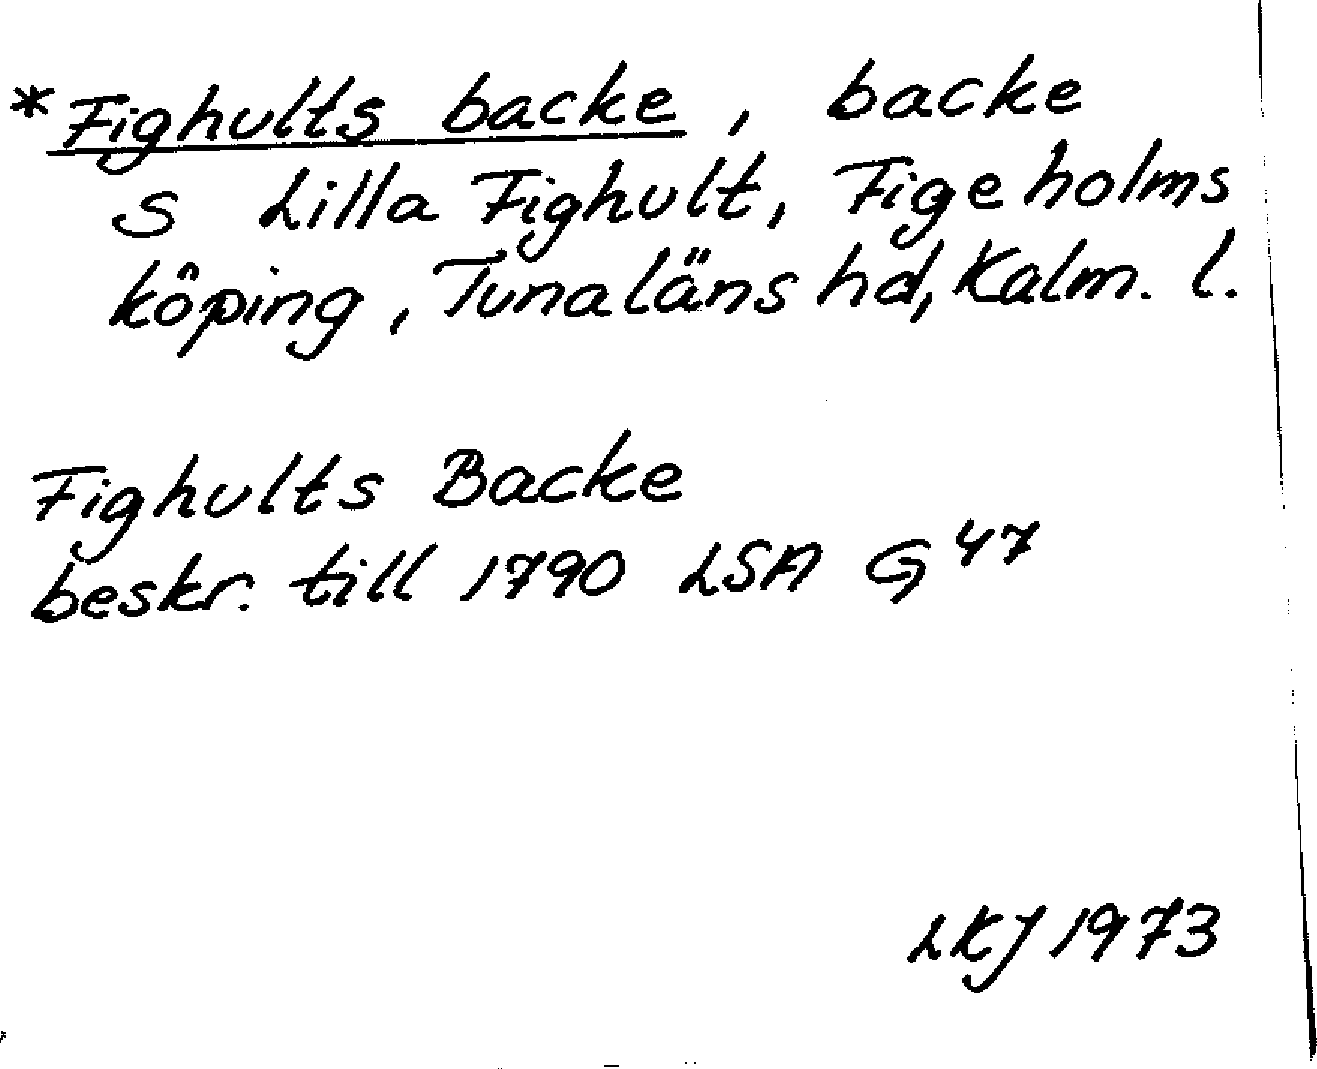 *Fighults backe, backe
s Lilla Fighult, Figeholms
köping, Tunaläns hd, Kalm. l.
Fighults Backe
beskr. till 1790 LSA G 47
LKJ 1973